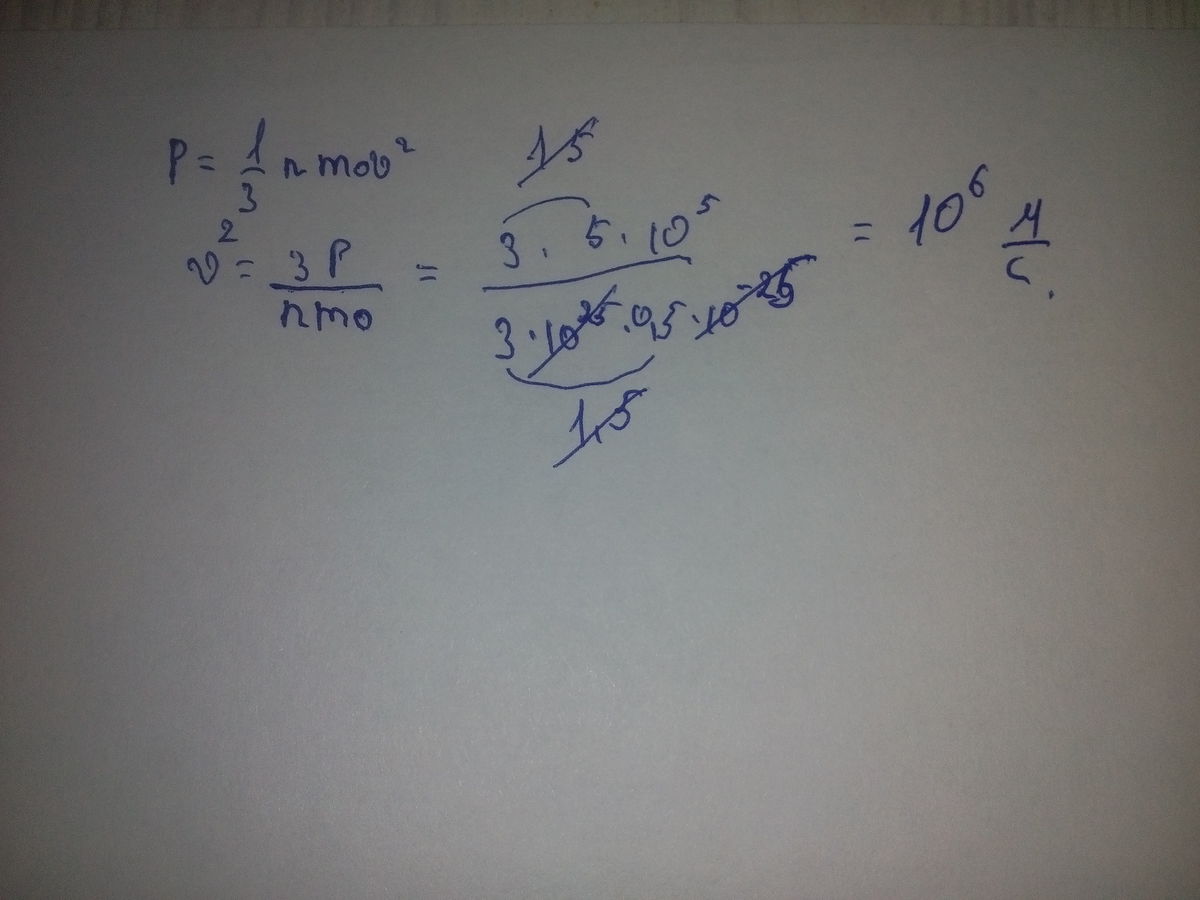 P = 1/3 n m₀ v²
15
v² = 3P / n m₀ = 3 · 5 · 10⁵ / 3 · 10²⁵ · 0,5 · 10⁻²⁵ = 10⁶ м/с.
1,5